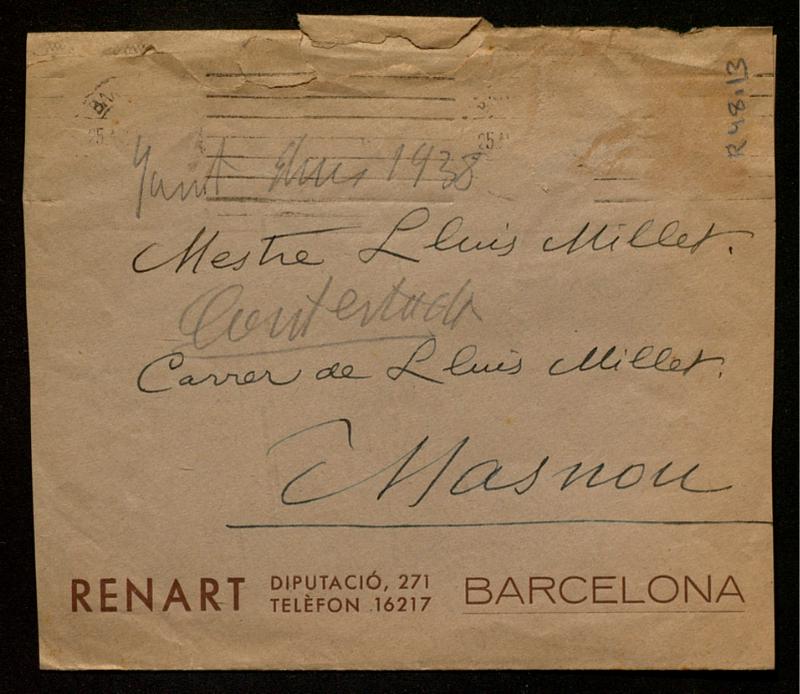 R 48.13
1938
Mestre Lluis Millet.
Contestada
Carrer de Lluis Millet.
Masnou
RENART DIPUTACIÓ, 271 BARCELONA
TELÈFON 16217